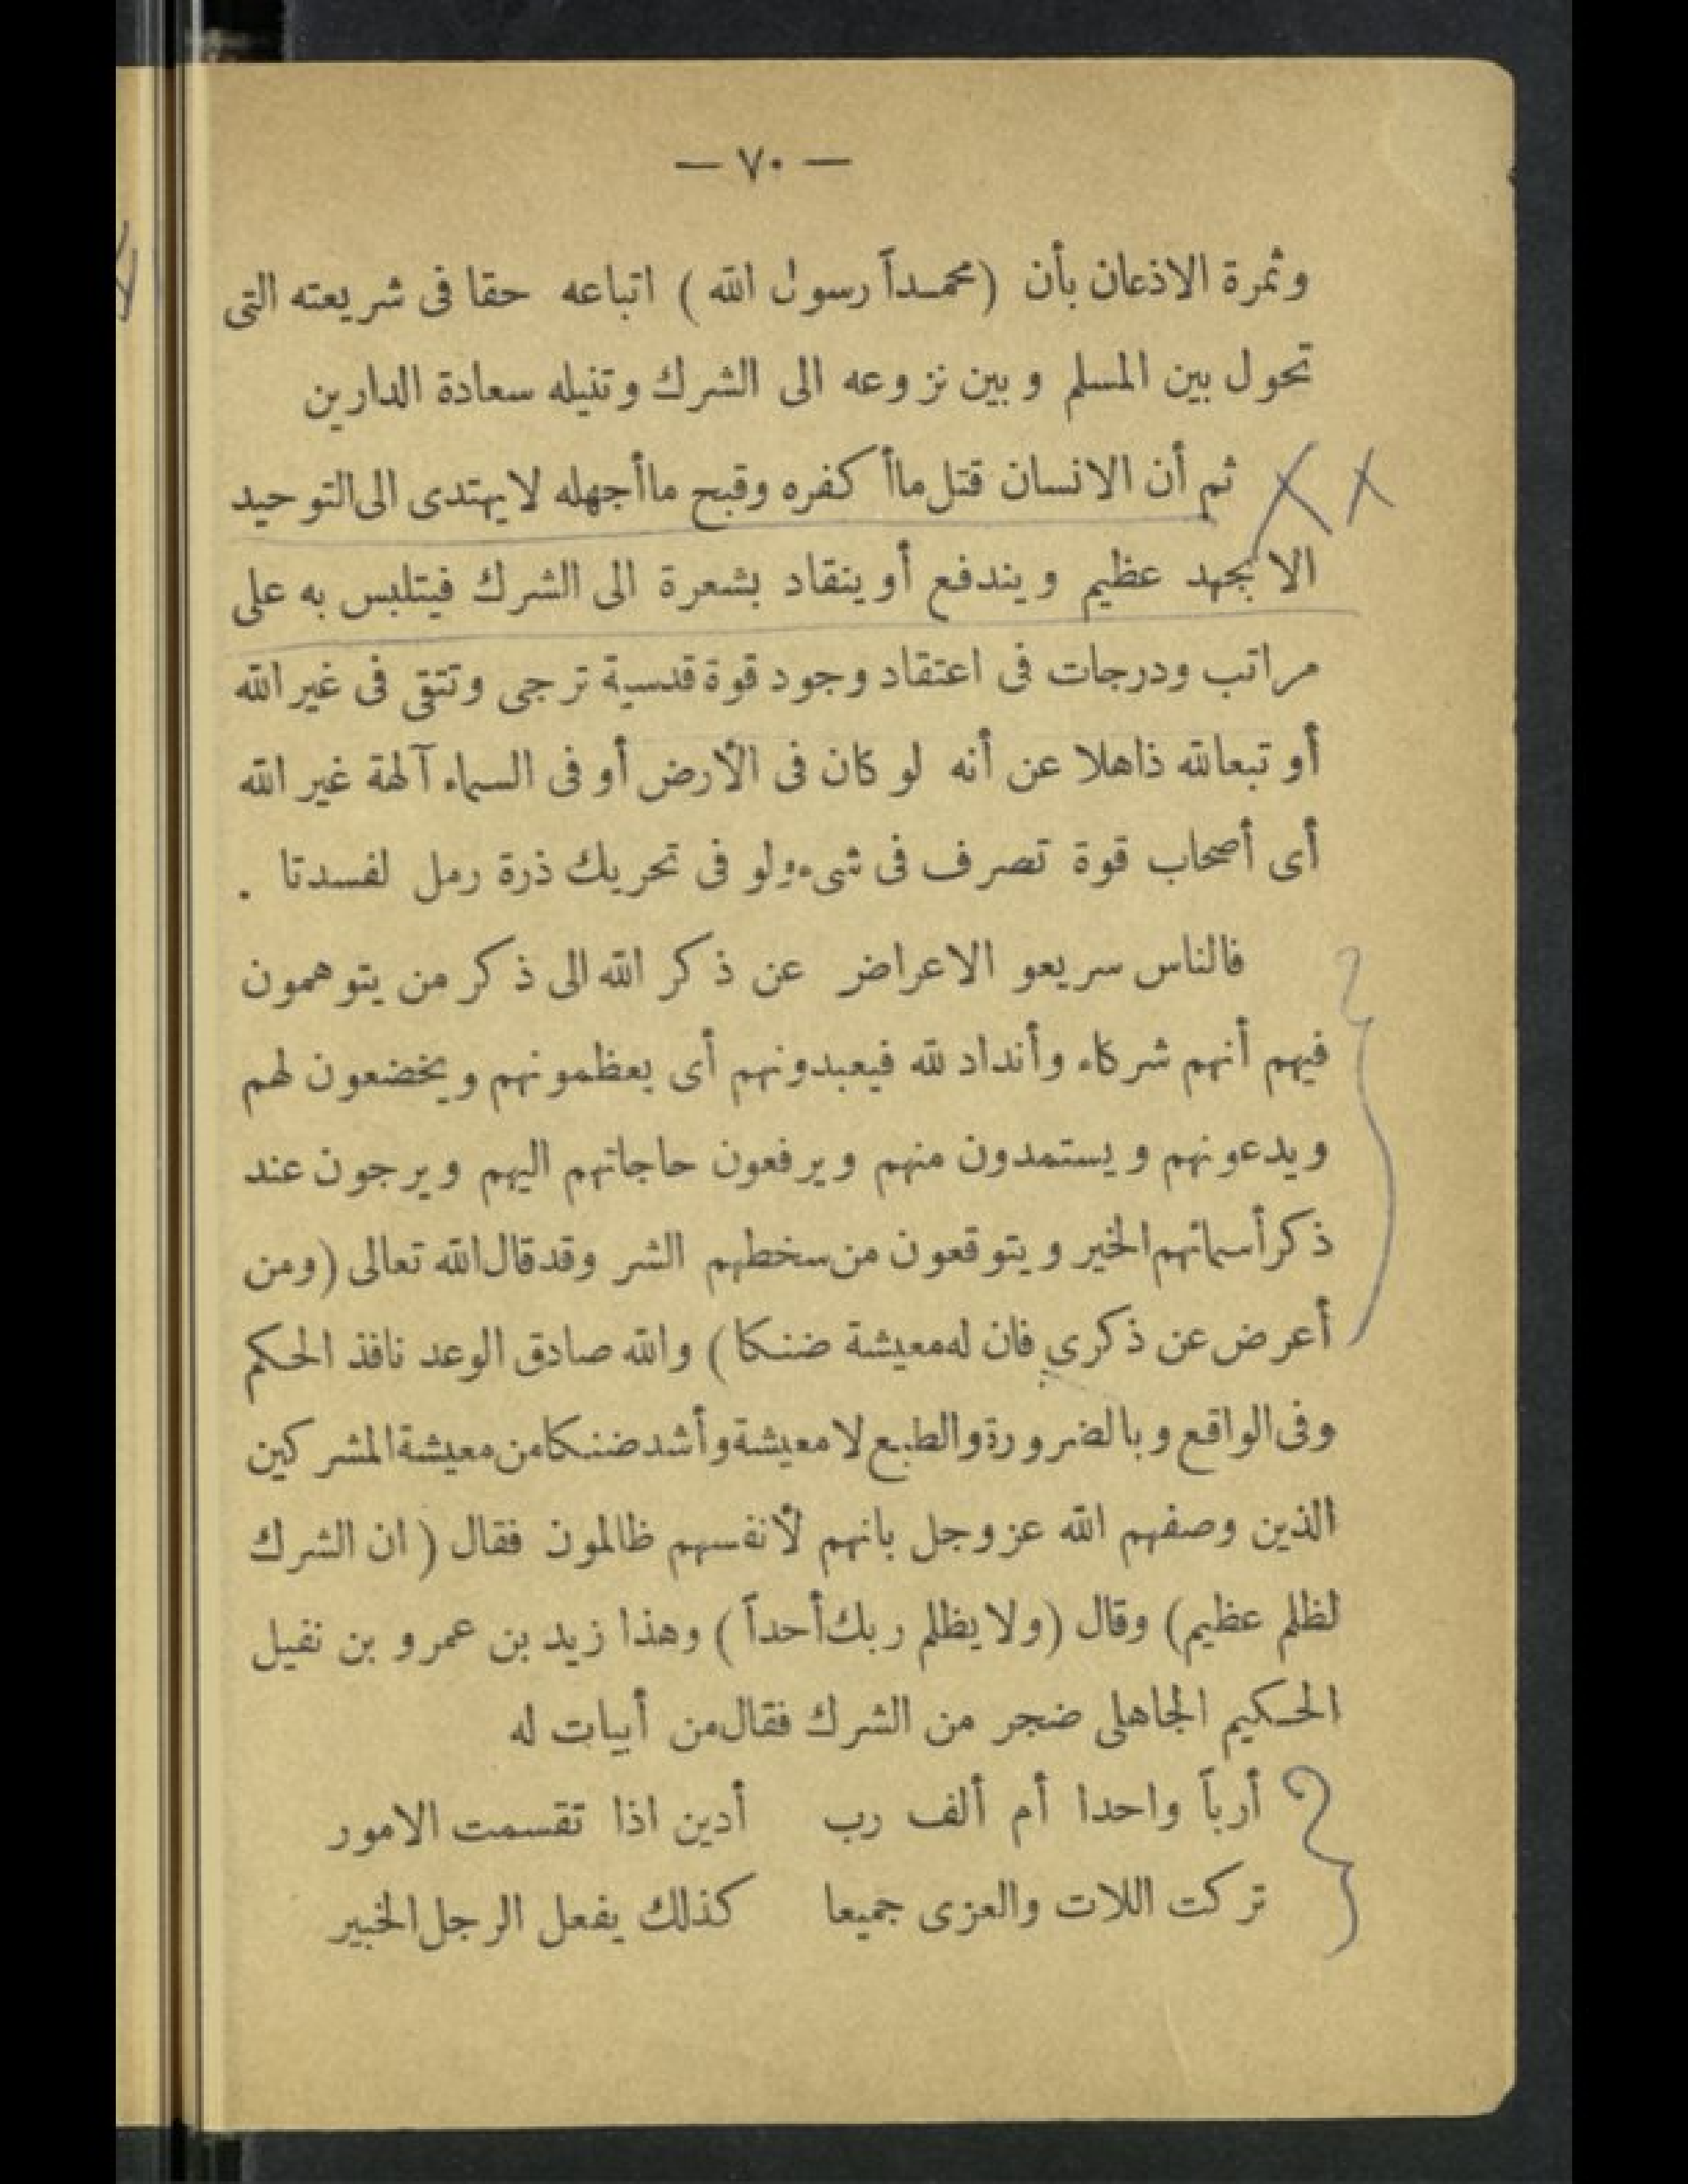 — ٧٠ —
وثمرة الاذعان بأن (محمداً رسول الله) اتباعه حقا فى شريعته التى
تحول بين المسلم وبين نزوعه الى الشرك وتنيله سعادة الدارين
ثم أن الانسان قتل ما أكفره وقبح ما أجهله لا يهتدى الى التوحيد
الا بجهد عظيم ويندفع أو ينقاد بشعرة الى الشرك فيتلبس به على
مراتب ودرجات فى اعتقاد وجود قوة قدسية ترجى وتتقى فى غير الله
أو تبعا لله ذاهلا عن أنه لو كان فى الأرض أو فى السماء آلهة غير الله
أى أصحاب قوة تصرف فى شىء ولو فى تحريك ذرة رمل لفسدتا .
فالناس سريعو الاعراض عن ذكر الله الى ذكر من يتوهمون
فيهم أنهم شركاء وأنداد لله فيعبدونهم أى يعظمونهم ويخضعون لهم
ويدعونهم ويستمدون منهم ويرفعون حاجاتهم اليهم ويرجون عند
ذكر أسمائهم الخير ويتوقعون من سخطهم الشر وقد قال الله تعالى (ومن
أعرض عن ذكرى فان له معيشة ضنكا) والله صادق الوعد نافذ الحكم
وفى الواقع وبالضرورة والطبع لا معيشة وأشد ضنكا من معيشة المشركين
الذين وصفهم الله عز وجل بانهم لأنفسهم ظالمون فقال (ان الشرك
لظلم عظيم) وقال (ولا يظلم ربك أحداً) وهذا زيد بن عمرو بن نفيل
الحكيم الجاهلى ضجر من الشرك فقال من أبيات له
أرباً واحدا أم ألف رب أدين اذا تقسمت الامور
تركت اللات والعزى جميعا كذلك يفعل الرجل الخبير